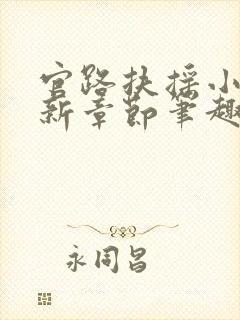 官路扶摇小
新章节笔趣
永同昌